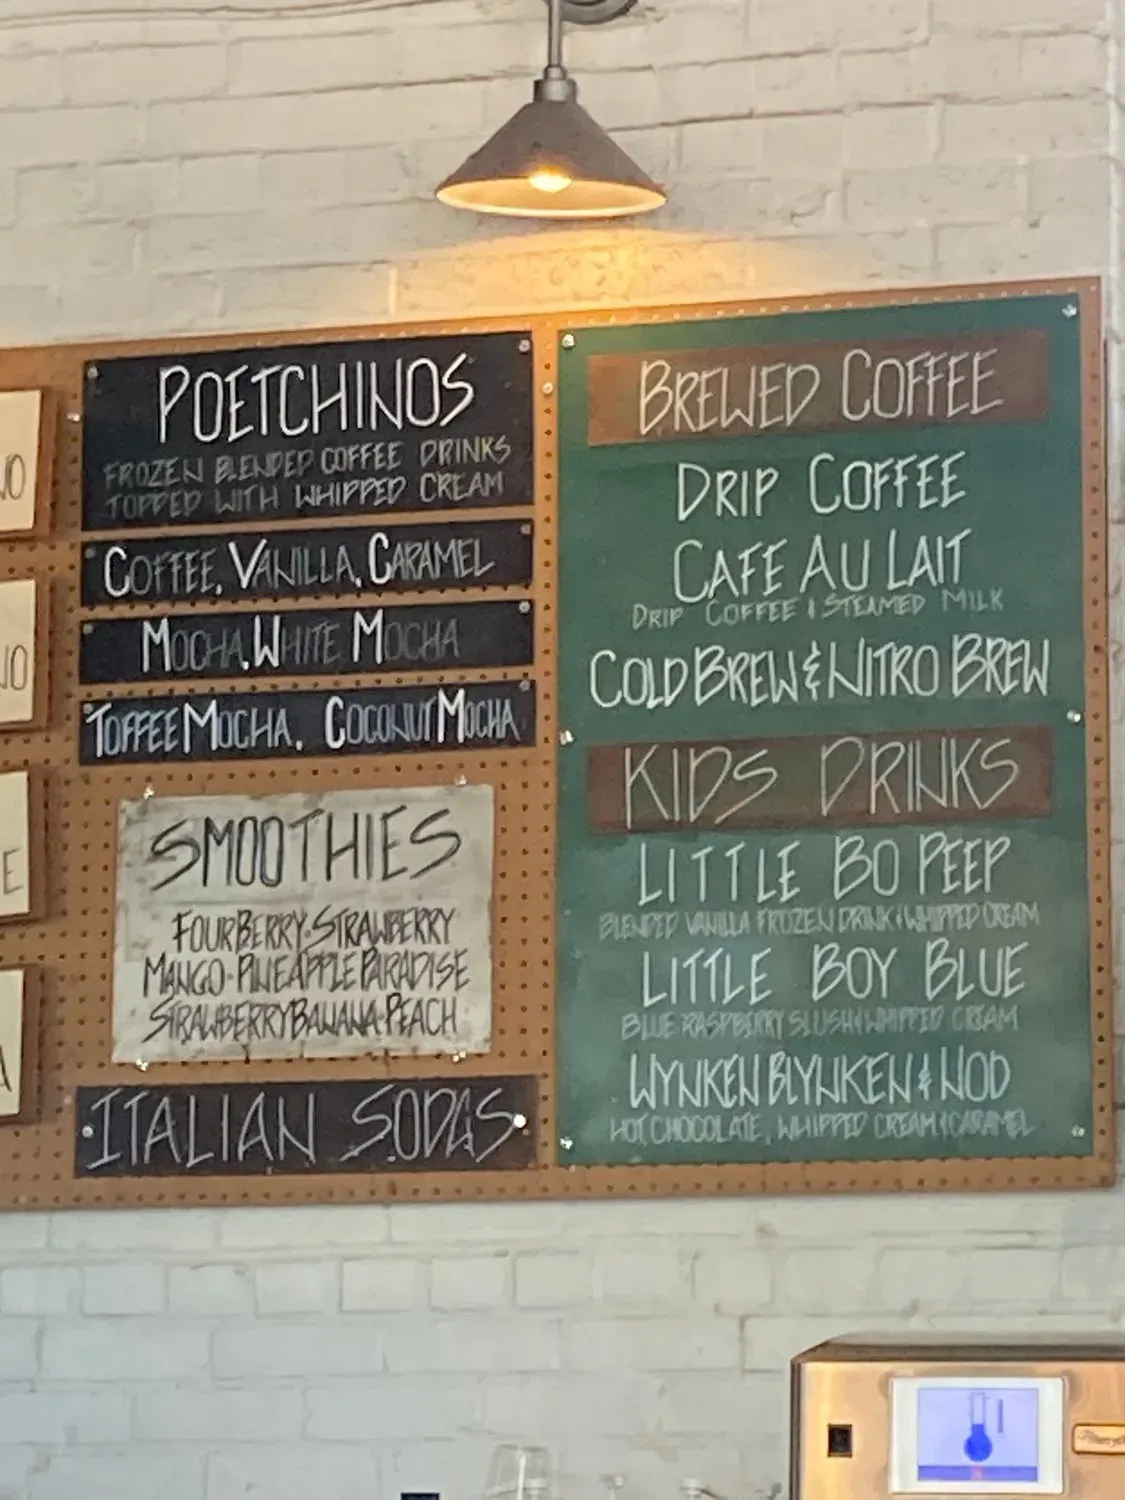 NO
NO
E
A
POETCHINOS
FROZEN BLENDED COFFEE DRINKS
TOPPED WITH WHIPPED CREAM
COFFEE, VANILLA, CARAMEL
MOCHA, WHITE MOCHA
TOFFEE MOCHA, COCONUT MOCHA
SMOOTHIES
FOUR BERRY · STRAWBERRY
MANGO · PINEAPPLE PARADISE
STRAWBERRY BANANA · PEACH
ITALIAN SODAS
BREWED COFFEE
DRIP COFFEE
CAFE AU LAIT
DRIP COFFEE & STEAMED MILK
COLD BREW & NITRO BREW
KIDS DRINKS
LITTLE BO PEEP
BLENDED VANILLA FROZEN DRINK & WHIPPED CREAM
LITTLE BOY BLUE
BLUE RASPBERRY SLUSH & WHIPPED CREAM
WYNKEN BLYNKEN & NOD
HOT CHOCOLATE, WHIPPED CREAM & CARAMEL